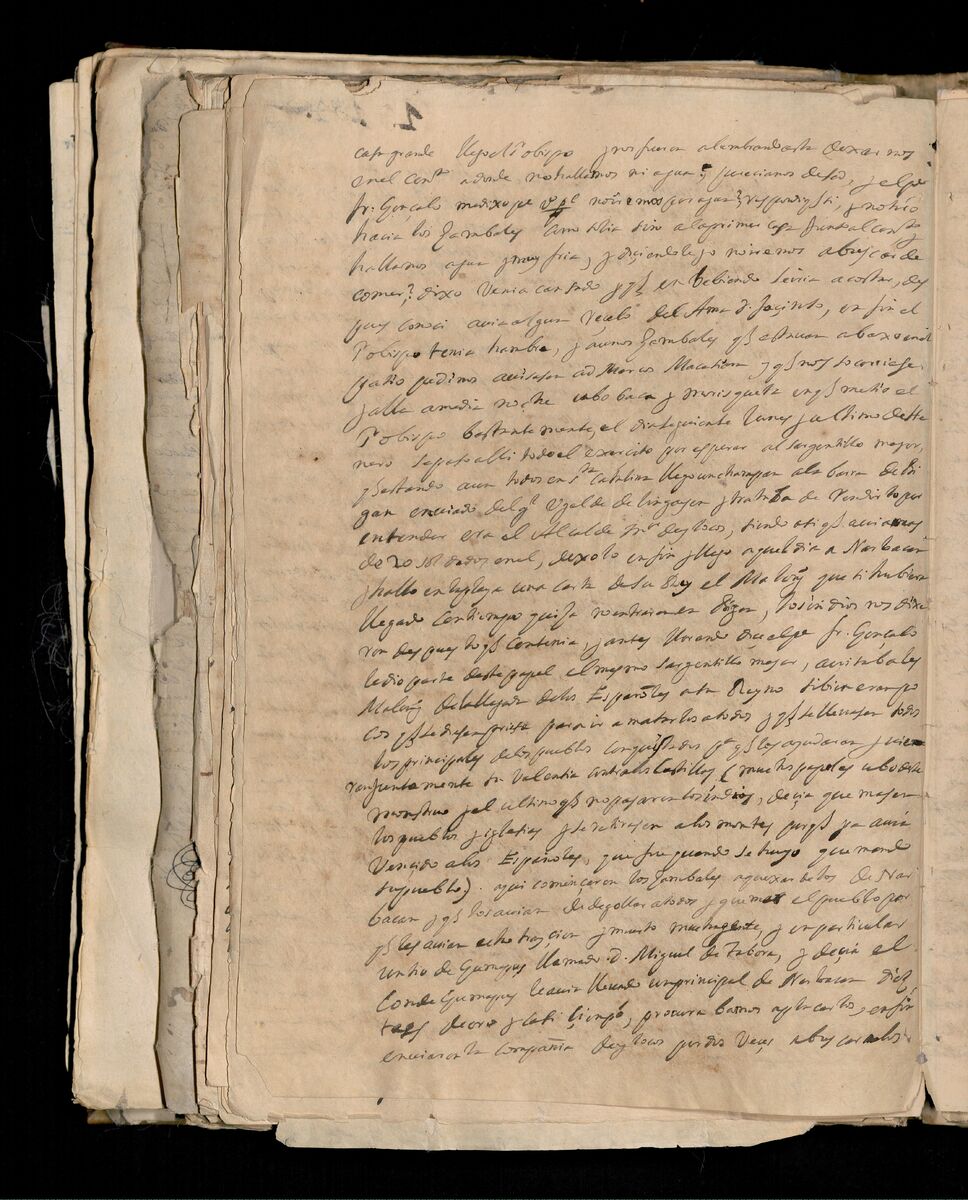 casa grande llego el Sr obispo y nos fueron alumbrando asta dexarnos
en el conto adonde no hallamos ni agua, y pereciamos de sed, y el pe
fr. Gonçalo me dixo pe no iremos por agua? respondi q si, y
hacia los Zambales a la primer casa junto al conto
hallamos agua y muy fria, y diçiendole yo no iremos a buscar de
comer? dixo venia cansado y q en bebiendo se iria acostar, des
pues conoci avia algun reçelo del Ama d. Jaçinto, en fin el
Sr obispo tenia hambre, y a unos Zambales q estavan abaxo en el
patio pedimos avisasen a d Marcos Macatiam y q nos socorriese,
y alla a media noche ubo baca y morisqueta en q metio el
Sr obispo bastantemente, el dia siguiente lunes y ultimo de He
nero se paso alli todo el exercito por esperar al sargentillo mayor,
q estando aun todos en sta Catalina llego un champan a la barra de bi
gan enviado del gl Ugalde de lingayen y trataba de rendirlo por
entender era el Alcalde de ylocos, siendo asi q avia mas
de 20 soldados en el, dexolo en fin y llego aquel dia a Narbacan
y hallo en la playa una carta de su Rey el Malong que si hubiera
llegado con tiempo quiza no entraramos en Bigan, los indios nos dixe
ron despues lo q contenia, y antes llorando diçe el pe fr. Gonçalo
le dio parte deste papel el mesmo sargentillo mayor, avisabales
Malong de la llegada de los Españoles a su Reyno si bien eran po
cos q se diesen priesa para ir a matarlos a todos y q se llevasen todos
los principales de los pueblos conquistados pa q les ayudaran y viera
conjuntamente su valentia contra los Castillas (muchos papeles ubo deste
monstruo y el ultimo q no pasaron los indios, decia que
los pueblos y iglesias y se retirasen a los montes porq ya avia
vençido a los Españoles, que fue quando se huyo quemando
su pueblo). aqui començaron los Zambales a quexarse de los de Nar
bacan y q los avian de degollar a todos y quemar el pueblo por
q les avian echo trayçion y muerto mucha gente, y en particular
un tio de Gumapus llamado d. Miguel de Tabora, y deçia el
Conde Gumapus le avia llevado un principal de Narbacan
taes de oro y casi tiempo, procurabamos aplacarlos, en fin
enviaron la compañia de ylocos por dos veces a buscar a los